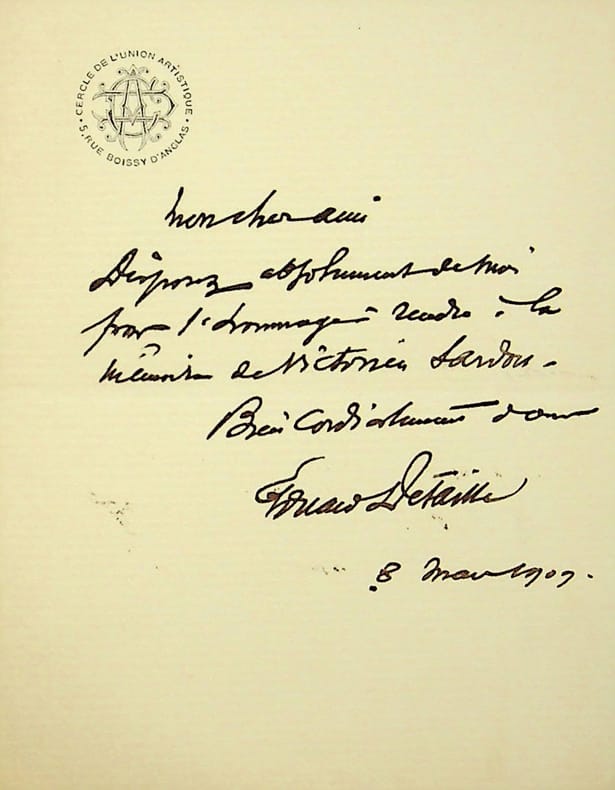 CERCLE DE L'UNION ARTISTIQUE
5, RUE BOISSY D'ANGLAS
Mon cher ami
Disposez absolument de moi
pour l'hommage à rendre à la
mémoire de Victorien Sardou -
Bien cordialement à vous
Édouard Detaille
8 Mars 1909.